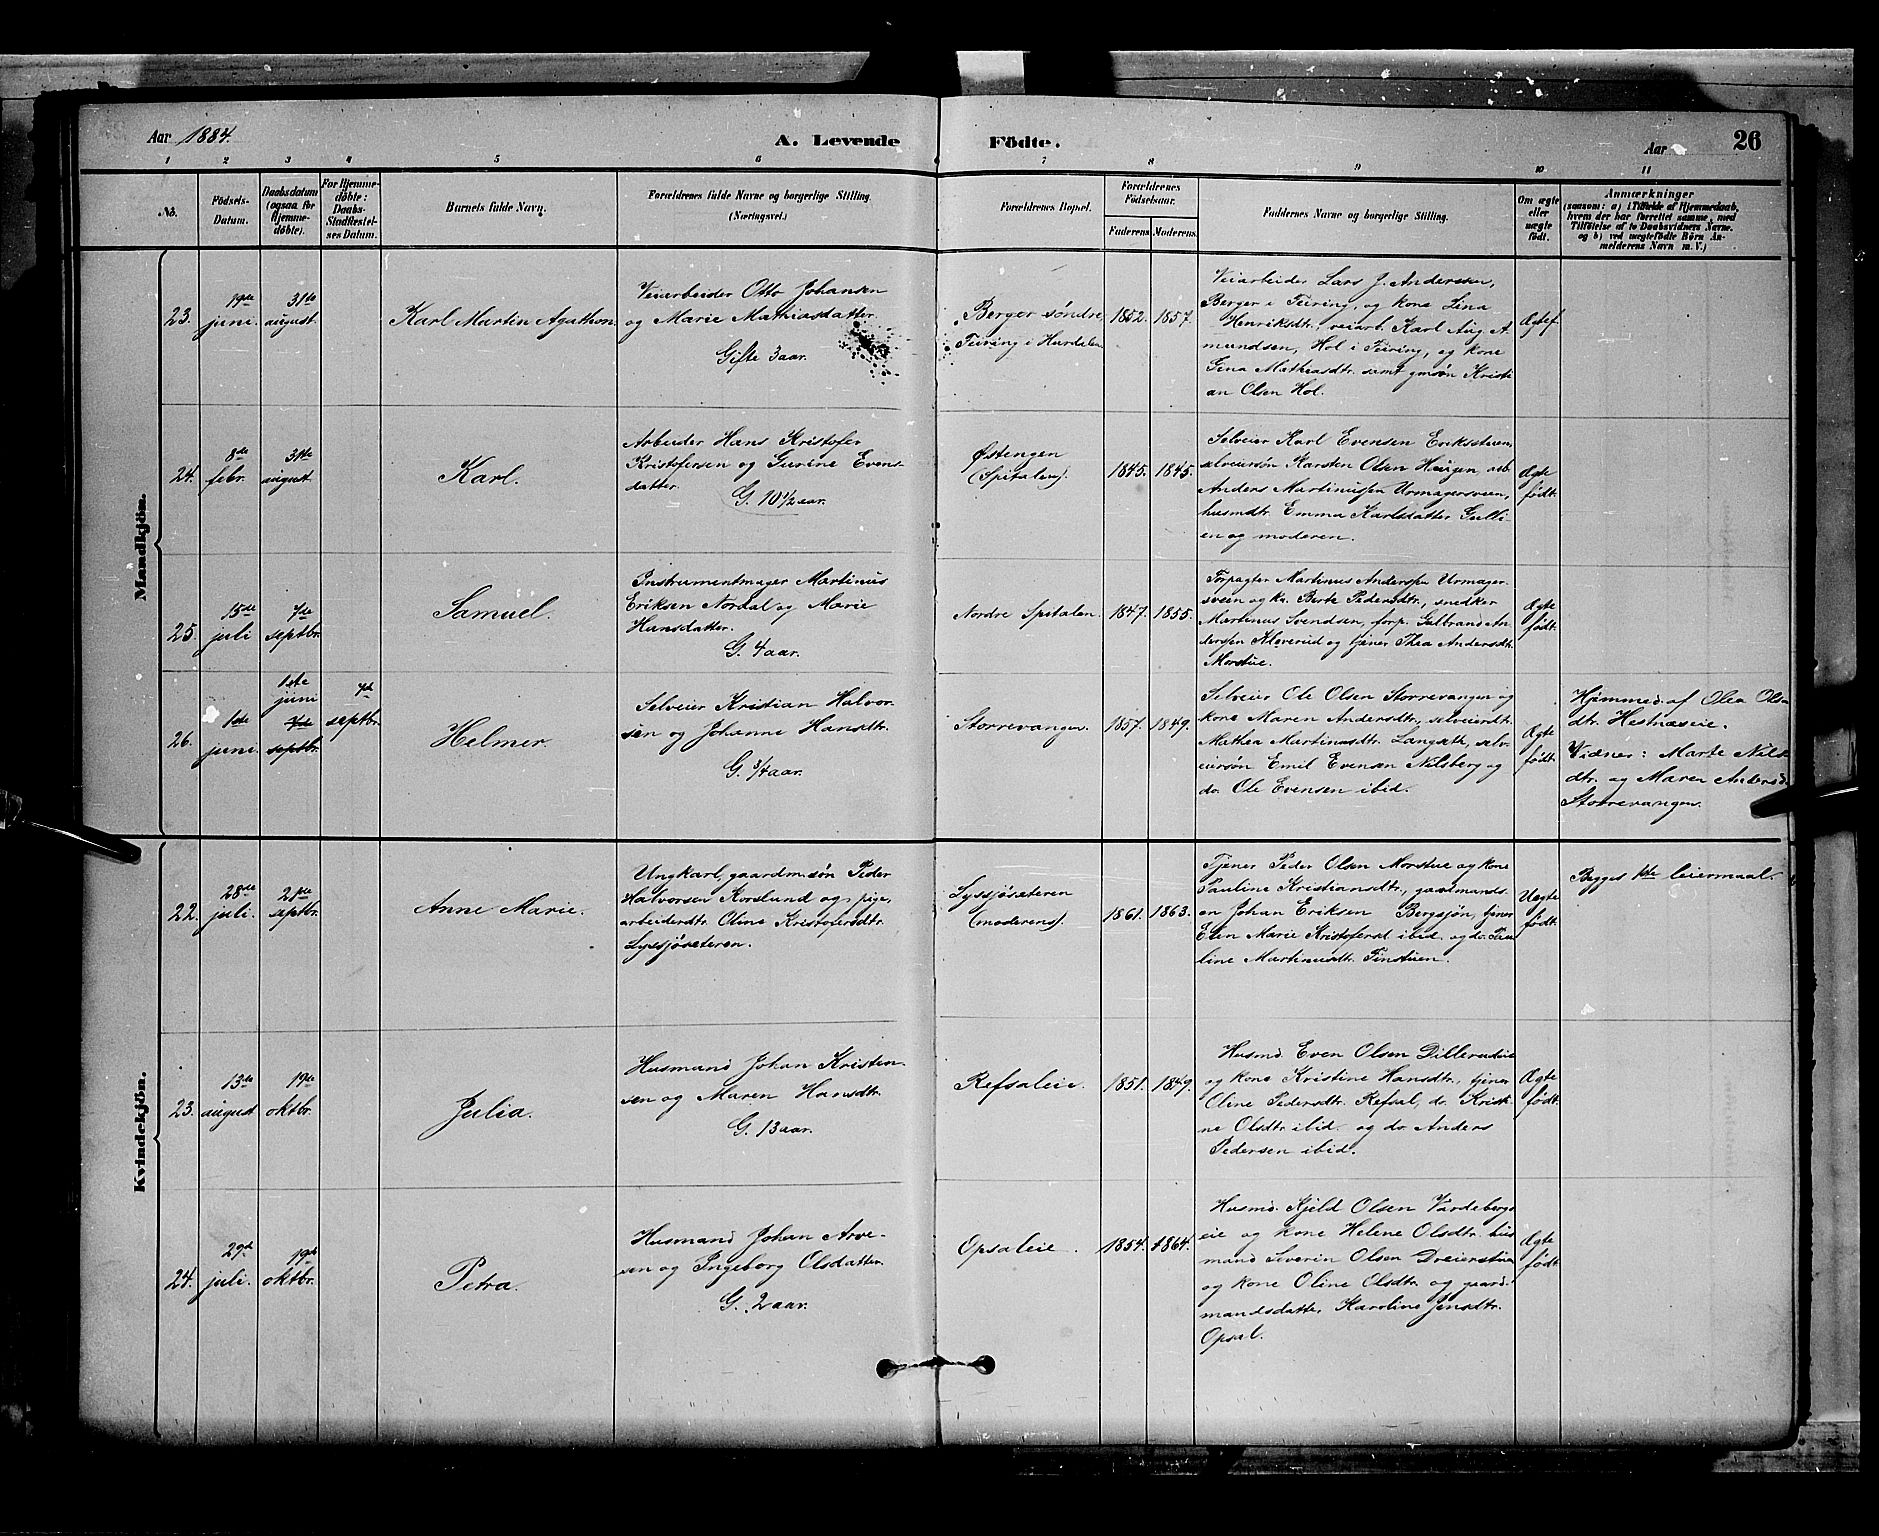 Aar 1884.
A. Levende Födte.
Aar
26
1 2 3 4 5 6 7 8 9 10 11
No.
Födsels-
Datum.
Daabsdatum
(ogsaa for
Hjemme-
döbte).
For Hjemme-
döbte:
Daabs-
Stadfæstel-
ses Datum.
Barnets fulde Navn.
Forældrenes fulde Navne og borgerlige Stilling
(Næringsvei.)
Forældrenes Bopæl.
Forældrenes
Födselsaar.
Faderens
Moderens.
Faddernes Navne og borgerlige Stilling.
Om ægte
eller
uægte
födt.
Anmærkninger
(saasom: a) i Tilfælde af Hjemmedaab,
hvem der har forrettet samme, med
Tilföielse af to Daabsvidners Navne.
og b) ved uægtefödte Börn An-
melderens Navn m. V.)
Mandkjön.
23.
19de
juni.
31te
august.
Karl Martin Agathon
Veiarbeider Otto Johansen
og Marie Mathiasdatter
Gifte 3 aar.
Berger søndre
Feiring i Hurdalen
1852.
1857.
Veiarbeider Lars J. Anderssen,
Berger i Feiring, og kone Lina
Henriksdtr., veiarb. Karl Aug. A-
mundsen, Hol i Feiring, og kone
Gina Mathiasdtr. samt gmsøn Kristi
an Olsen Hol.
Ægtef
24.
8de
febr.
31te
august
Karl.
Arbeider Hans Kristofer
Kristofersen og Gurine Evens-
datter.
G. 10 1/2 aar.
Østengen
(Spitalen).
1845.
1845.
Selveier Karl Evensen Eriksstuen,
selveiersøn Karsten Olsen Haugen arb.
Anders Martinussen Urmagersveen,
husmdtr. Emma Karlsdatter Gulli-
en og moderen.
Ægte
født.
25.
15de
juli
7de
septbr.
Samuel.
Instrumentmager Martinus
Eriksen Nordal og Marie
Hansdatter.
G. 4 aar.
Nordre Spitalen.
1847.
1855.
Forpagter Martinus Anderssen Urmager-
sveen og ko. Berte Pedersdtr., snedker
Martinus Svendsen, forp. Gulbrand An-
derssen Kloverud og tjener Thea Andersdtr.
Morstue.
Ægte
født.
26.
1ste
juni.
1ste
juni
7de
septbr.
7de
septbr.
Helmer.
Selveier Kristian Halvor-
sen og Johanne Hansdtr.
G. 3/4 aar.
Storrevangen.
1857.
1849.
Selveier Ole Olsen Storrevangen og
kone Maren Andersdtr., selveierdtr.
Mathea Martinusdtr. Langseth, selv-
eiersøn Emil Evensen Nilsberg og
do. Ole Evensen ibid.
Ægte
født.
Hjemmed. af Olea Ols-
dtr. Hestnæseie.
Vidner: Marte Nils-
dtr. og Maren Andersd.
Storrevangen.
Kvindekjön.
22.
28de
juli.
21de
septbr.
Anne Marie.
Ungkarl, gaardm.søn Peder
Halvorsen Korslund og pige,
arbeiderdtr. Oline Kristofersdtr.
Lyssjøseteren.
Lyssjøseteren
(moderens).
1861.
1863.
Tjener Peder Olsen Morstue og kone
Pauline Kristiansdtr., gaardmands-
øn Johan Eriksen Bergsjøn, tjener
Elen Marie Kristofersd ibid. og do. Pau-
line Martinusdtr. Finstuen.
Uægte
født.
Begges 1ste leiermaal.
23.
13de
august
19de
oktbr.
Julia.
Husmand Johan Kristen-
sen og Maren Hansdtr.
G. 13 aar.
Refsaleie.
1851.
1849.
Husmd. Even Olsen Dillerudeie
og kone Kristine Hansdtr., tjener
Oline Pedersdtr. Refsal, do. Kristi-
ne Olsdtr. ibid. og do. Anders
Pedersen ibid.
Ægte
født.
24.
29de
juli.
19de
oktbr.
Petra.
Husmand Johan Arve-
sen og Ingeborg Olsdatter.
G. 2 aar.
Opsaleie.
1854.
1864.
Husmd. Kjeld Olsen Vardebergs
eie og kone Helene Olsdtr. hus
mand Severin Olsen Dreierstuen
og kone Oline Olsdtr. og gaard-
mandsdatter Karoline Jensdtr.
Opsal.
Ægte
født.